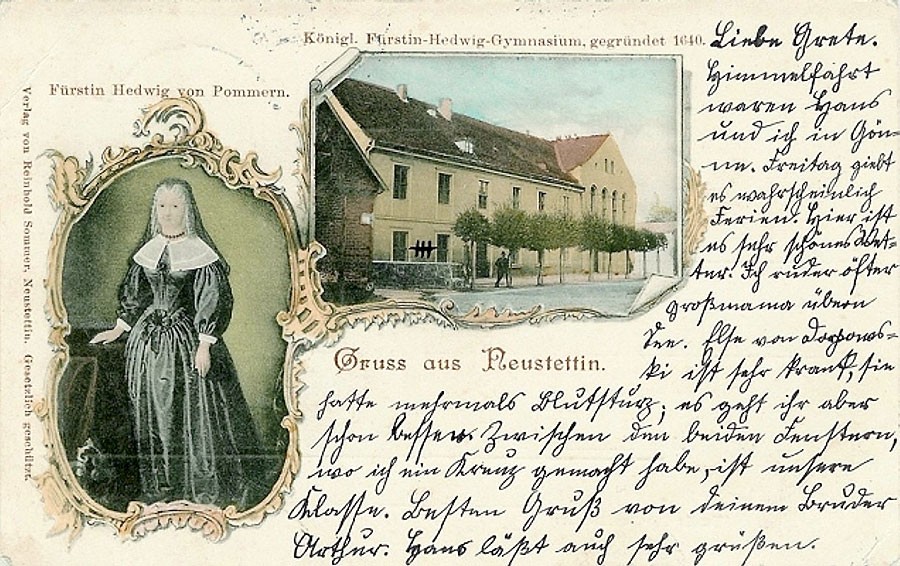 Königl. Fürstin-Hedwig-Gymnasium, gegründet 1640.
Fürstin Hedwig von Pommern.
Verlag von Reinhold Sommer, Neustettin. Gesetzlich geschützt.
Gruss aus Neustettin.
Liebe Grete.
Himmelfahrt
waren Hans
und ich in Gön-
ne. Freitag giebt
es wahrscheinlich
Ferien. Hier ist
es sehr schönes Wet-
ter. Ich ruder öfter
Großmama übern
See. Else von
ki ist sehr krank, sie
hatte mehrmals Blutsturz, es geht ihr aber
schon besser. Zwischen den beiden Fenstern,
wo ich ein Kreuz gemacht habe, ist unsere
Klasse. Besten Gruß von deinem Bruder
Arthur. Hans läßt auch sehr grüßen.